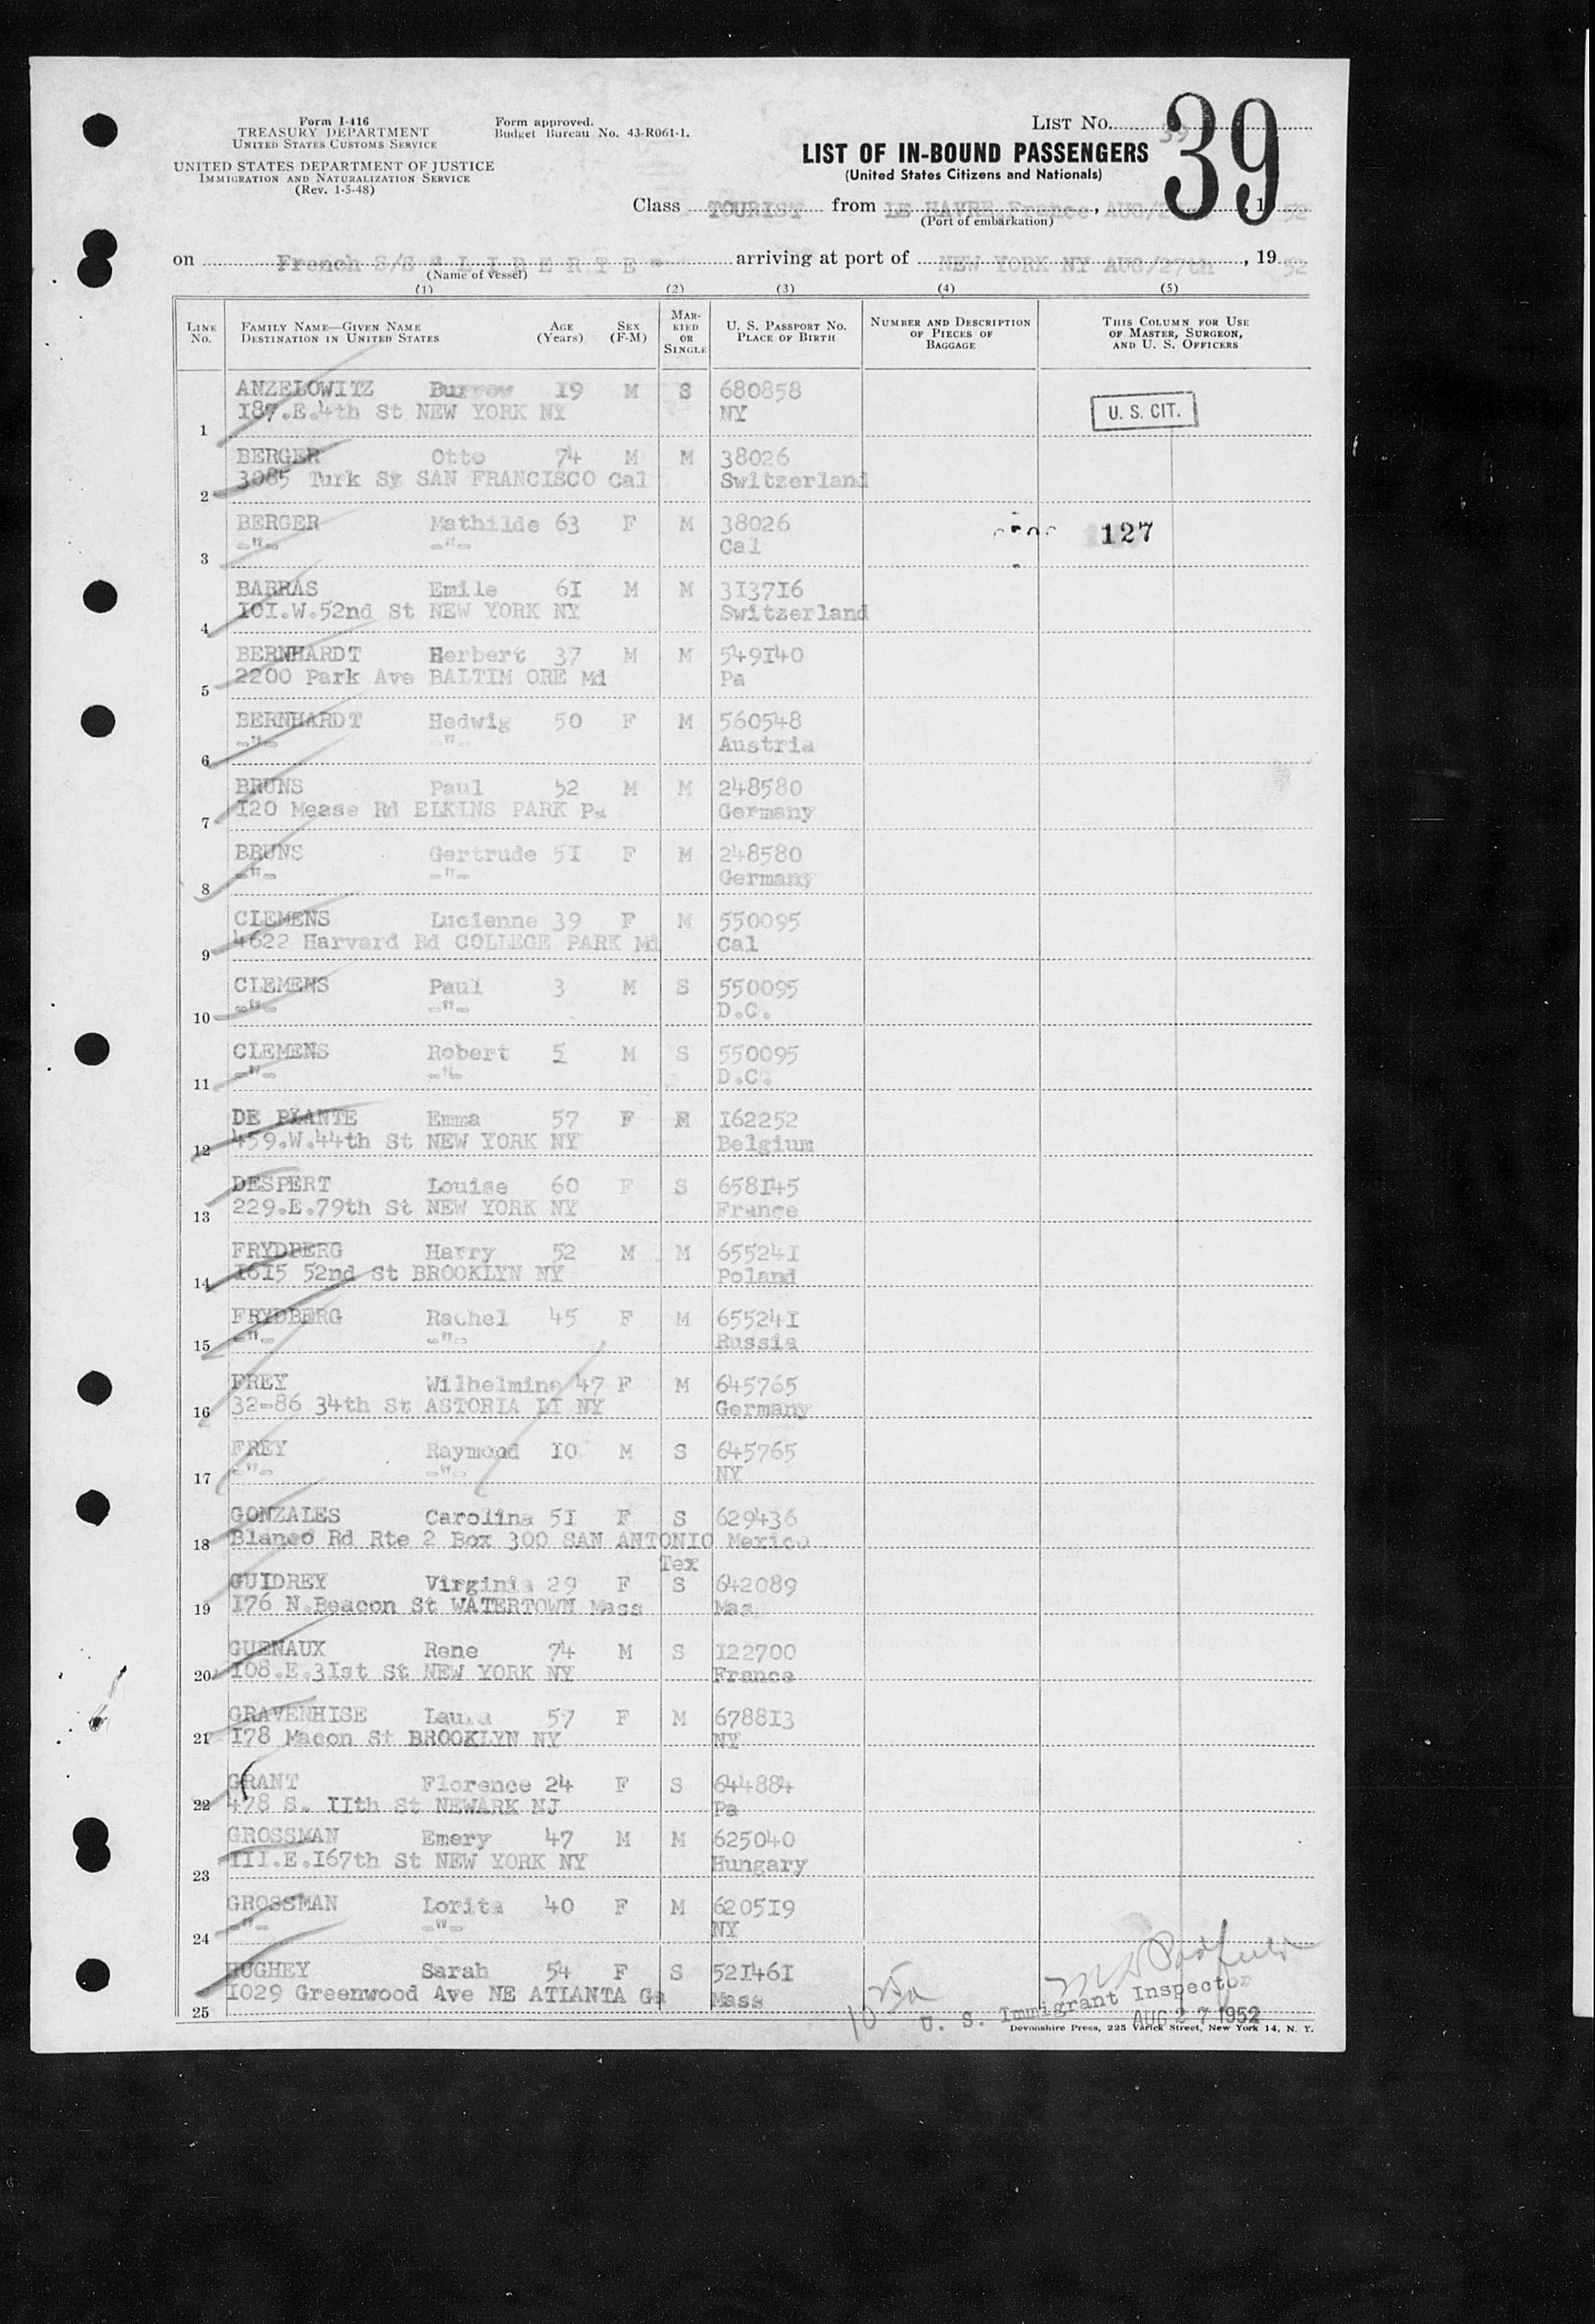 Form I-416
TREASURY DEPARTMENT
UNITED STATES CUSTOMS SERVICE
UNITED STATES DEPARTMENT OF JUSTICE
IMMIGRATION AND NATURALIZATION SERVICE
(Rev. 1-5-48)
Form approved.
Budget Bureau No. 43-R061-1.
LIST No. 39
39
LIST OF IN-BOUND PASSENGERS
(United States Citizens and Nationals)
Class TOURIST from LE HAVRE, France, AUG/ , 1 52
(Port of embarkation)
on French S/S " L I B E R T E " arriving at port of NEW YORK NY AUG/27th , 19 52
(Name of vessel)
(1) (2) (3) (4) (5)
LINE No. FAMILY NAME—GIVEN NAME DESTINATION IN UNITED STATES AGE (Years) SEX (F-M) MARRIED OR SINGLE U. S. PASSPORT No. PLACE OF BIRTH NUMBER AND DESCRIPTION OF PIECES OF BAGGAGE THIS COLUMN FOR USE OF MASTER, SURGEON, AND U. S. OFFICERS
ANZELOWITZ Burrow 19 M S 680858
1 187.E.4th St NEW YORK NY NY U. S. CIT.
BERGER Otto 74 M M 38026
2 3085 Turk St SAN FRANCISCO Cal Switzerland
BERGER Mathilde 63 F M 38026 127
3 -"- -"- Cal
BARRAS Emile 6I M M 3I37I6
4 IOI.W.52nd St NEW YORK NY Switzerland
BERNHARDT Herbert 37 M M 549I40
5 2200 Park Ave BALTIM ORE Md Pa
BERNHARDT Hedwig 50 F M 560548
6 -"- -"- Austria
BRUNS Paul 52 M M 248580
7 I20 Mease Rd ELKINS PARK Pa Germany
BRUNS Gertrude 5I F M 248580
8 -"- -"- Germany
CLEMENS Lucienne 39 F M 550095
9 4622 Harvard Rd COLLEGE PARK Md Cal
CLEMENS Paul 3 M S 550095
10 -"- -"- D.C.
CLEMENS Robert 5 M S 550095
11 -"- -"- D.C.
DE PLANTE Emma 57 F M I62252
12 459.W.44th St NEW YORK NY Belgium
DESPERT Louise 60 F S 658I45
13 229.E.79th St NEW YORK NY France
FRYDBERG Harry 52 M M 65524I
14 I6I5 52nd St BROOKLYN NY Poland
FRYDBERG Rachel 45 F M 65524I
15 -"- -"- Russia
FREY Wilhelmina 47 F M 645765
16 32-86 34th St ASTORIA LI NY Germany
FREY Raymond IO M S 645765
17 -"- -"- NY
GONZALES Carolina 5I F S 629436
18 Blanco Rd Rte 2 Box 300 SAN ANTONIO Mexico
Tex
GUIDREY Virginia 29 F S 642089
19 I76 N.Beacon St WATERTOWN Mass Mas
GUENAUX Rene 74 M S I22700
20 I08.E.3Ist St NEW YORK NY France
GRAVENHISE Laura 57 F M 6788I3
21 I78 Macon St BROOKLYN NY NY
GRANT Florence 24 F S 644884
22 478 S. IIth St NEWARK NJ Pa
GROSSMAN Emery 47 M M 625040
23 III.E.I67th St NEW YORK NY Hungary
GROSSMAN Lorita 40 F M 6205I9
24 -"- -"- NY
HUGHEY Sarah 54 F S 52I46I
25 I029 Greenwood Ave NE ATLANTA Ga Mass
U. S. Immigrant Inspector
AUG 27 1952
Devonshire Press, 225 Varick Street, New York 14, N. Y.